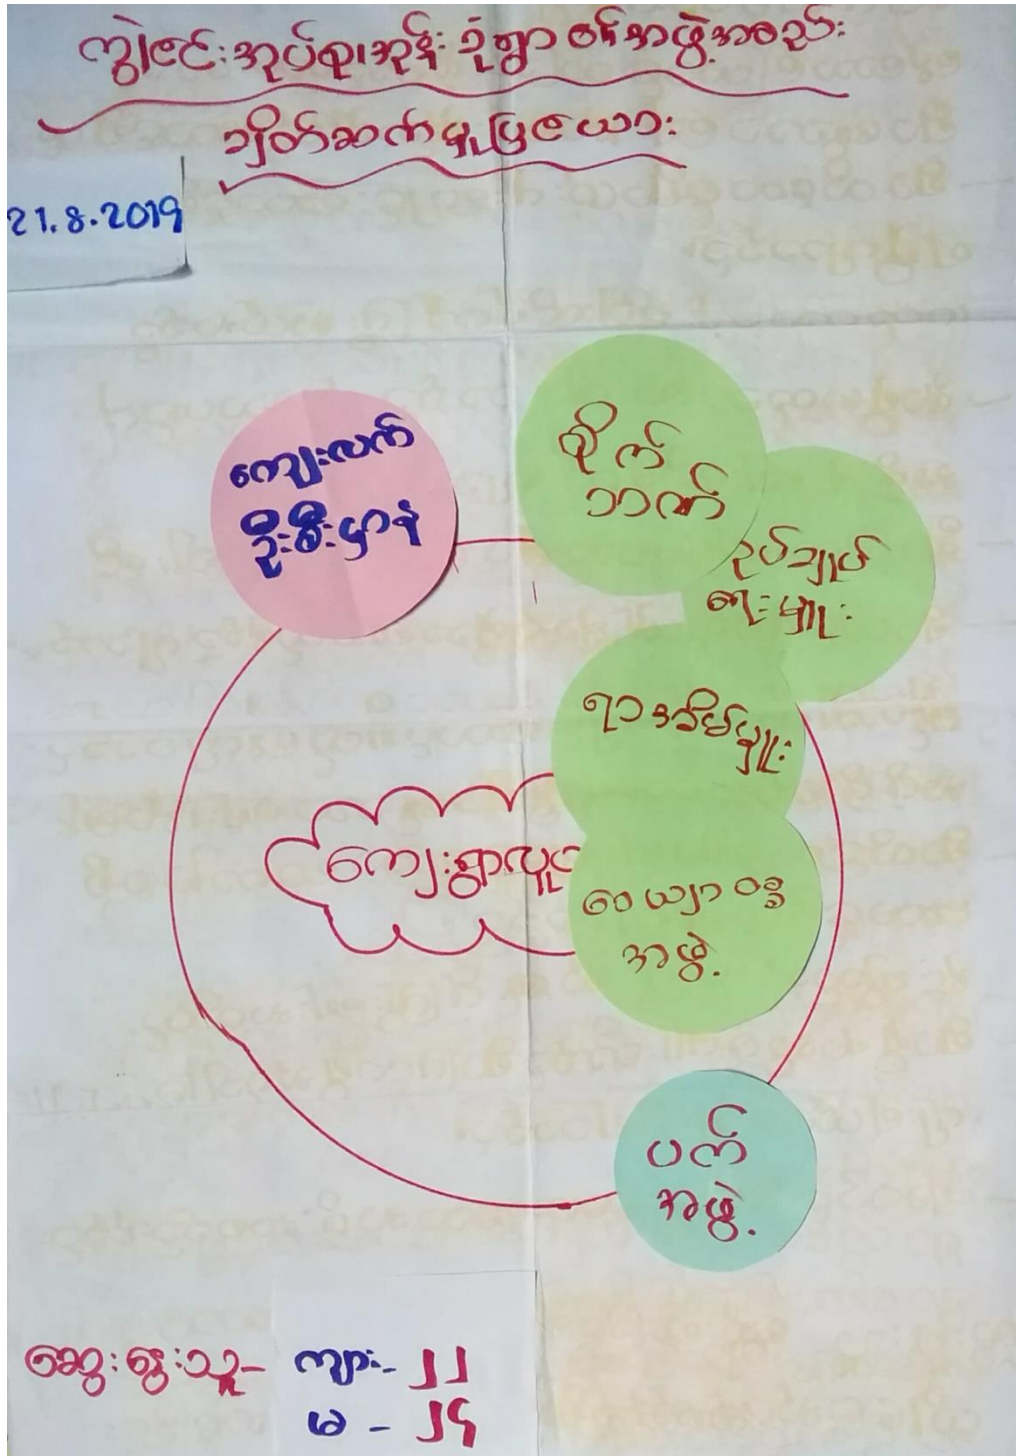 ကျွဲဝင်းအုပ်စု၊အုန်းဒုံရွာ ဇစ်အဖွဲ့အစည်း
ချိတ်ဆက်မှုပြဇယား
21.8.2019
ကျေးလက်
ဦးစီးဌာန
စိုက်
ဘဏ်
အုပ်ချုပ်
ရေးမှူး
ရာအိမ်မှူး
ကျေးရွာလူ
ဝေယျာဝစ္စ
အဖွဲ့.
ပက်
အဖွဲ့.
ဆွေးနွေးသူ- ကျား- ၂၂
မ - ၂၄